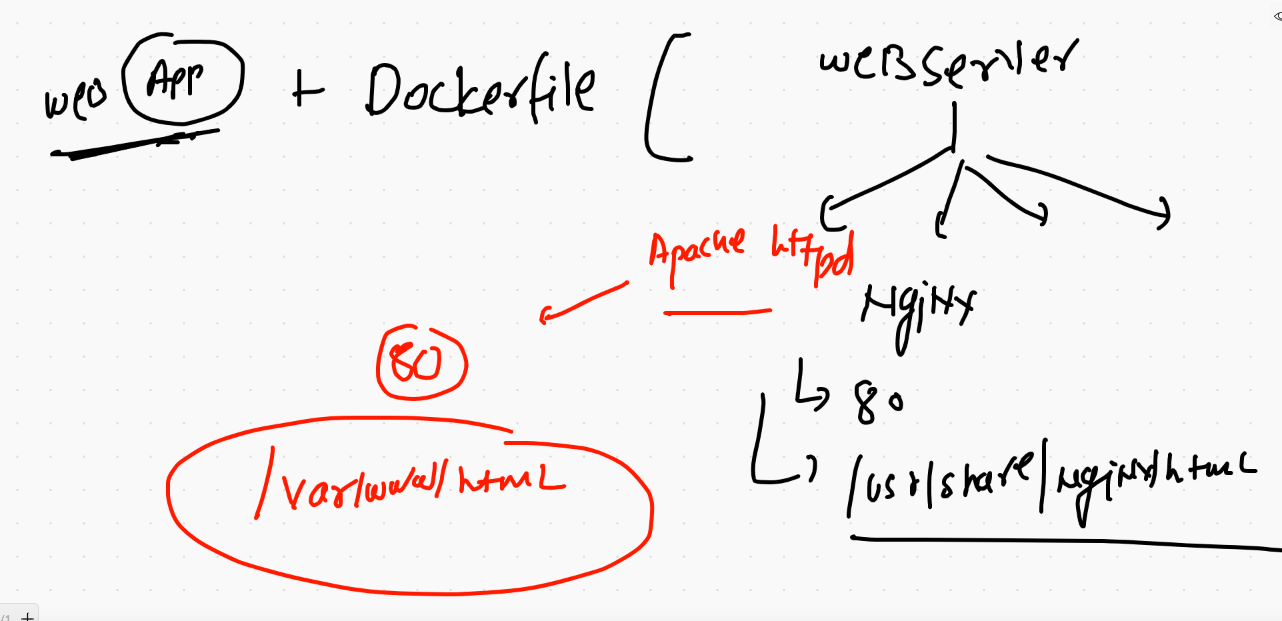 web App + Dockerfile
webServer
Apache httpd
Nginx
80
80
/var/www/html
/usr/share/nginx/html
/1 +